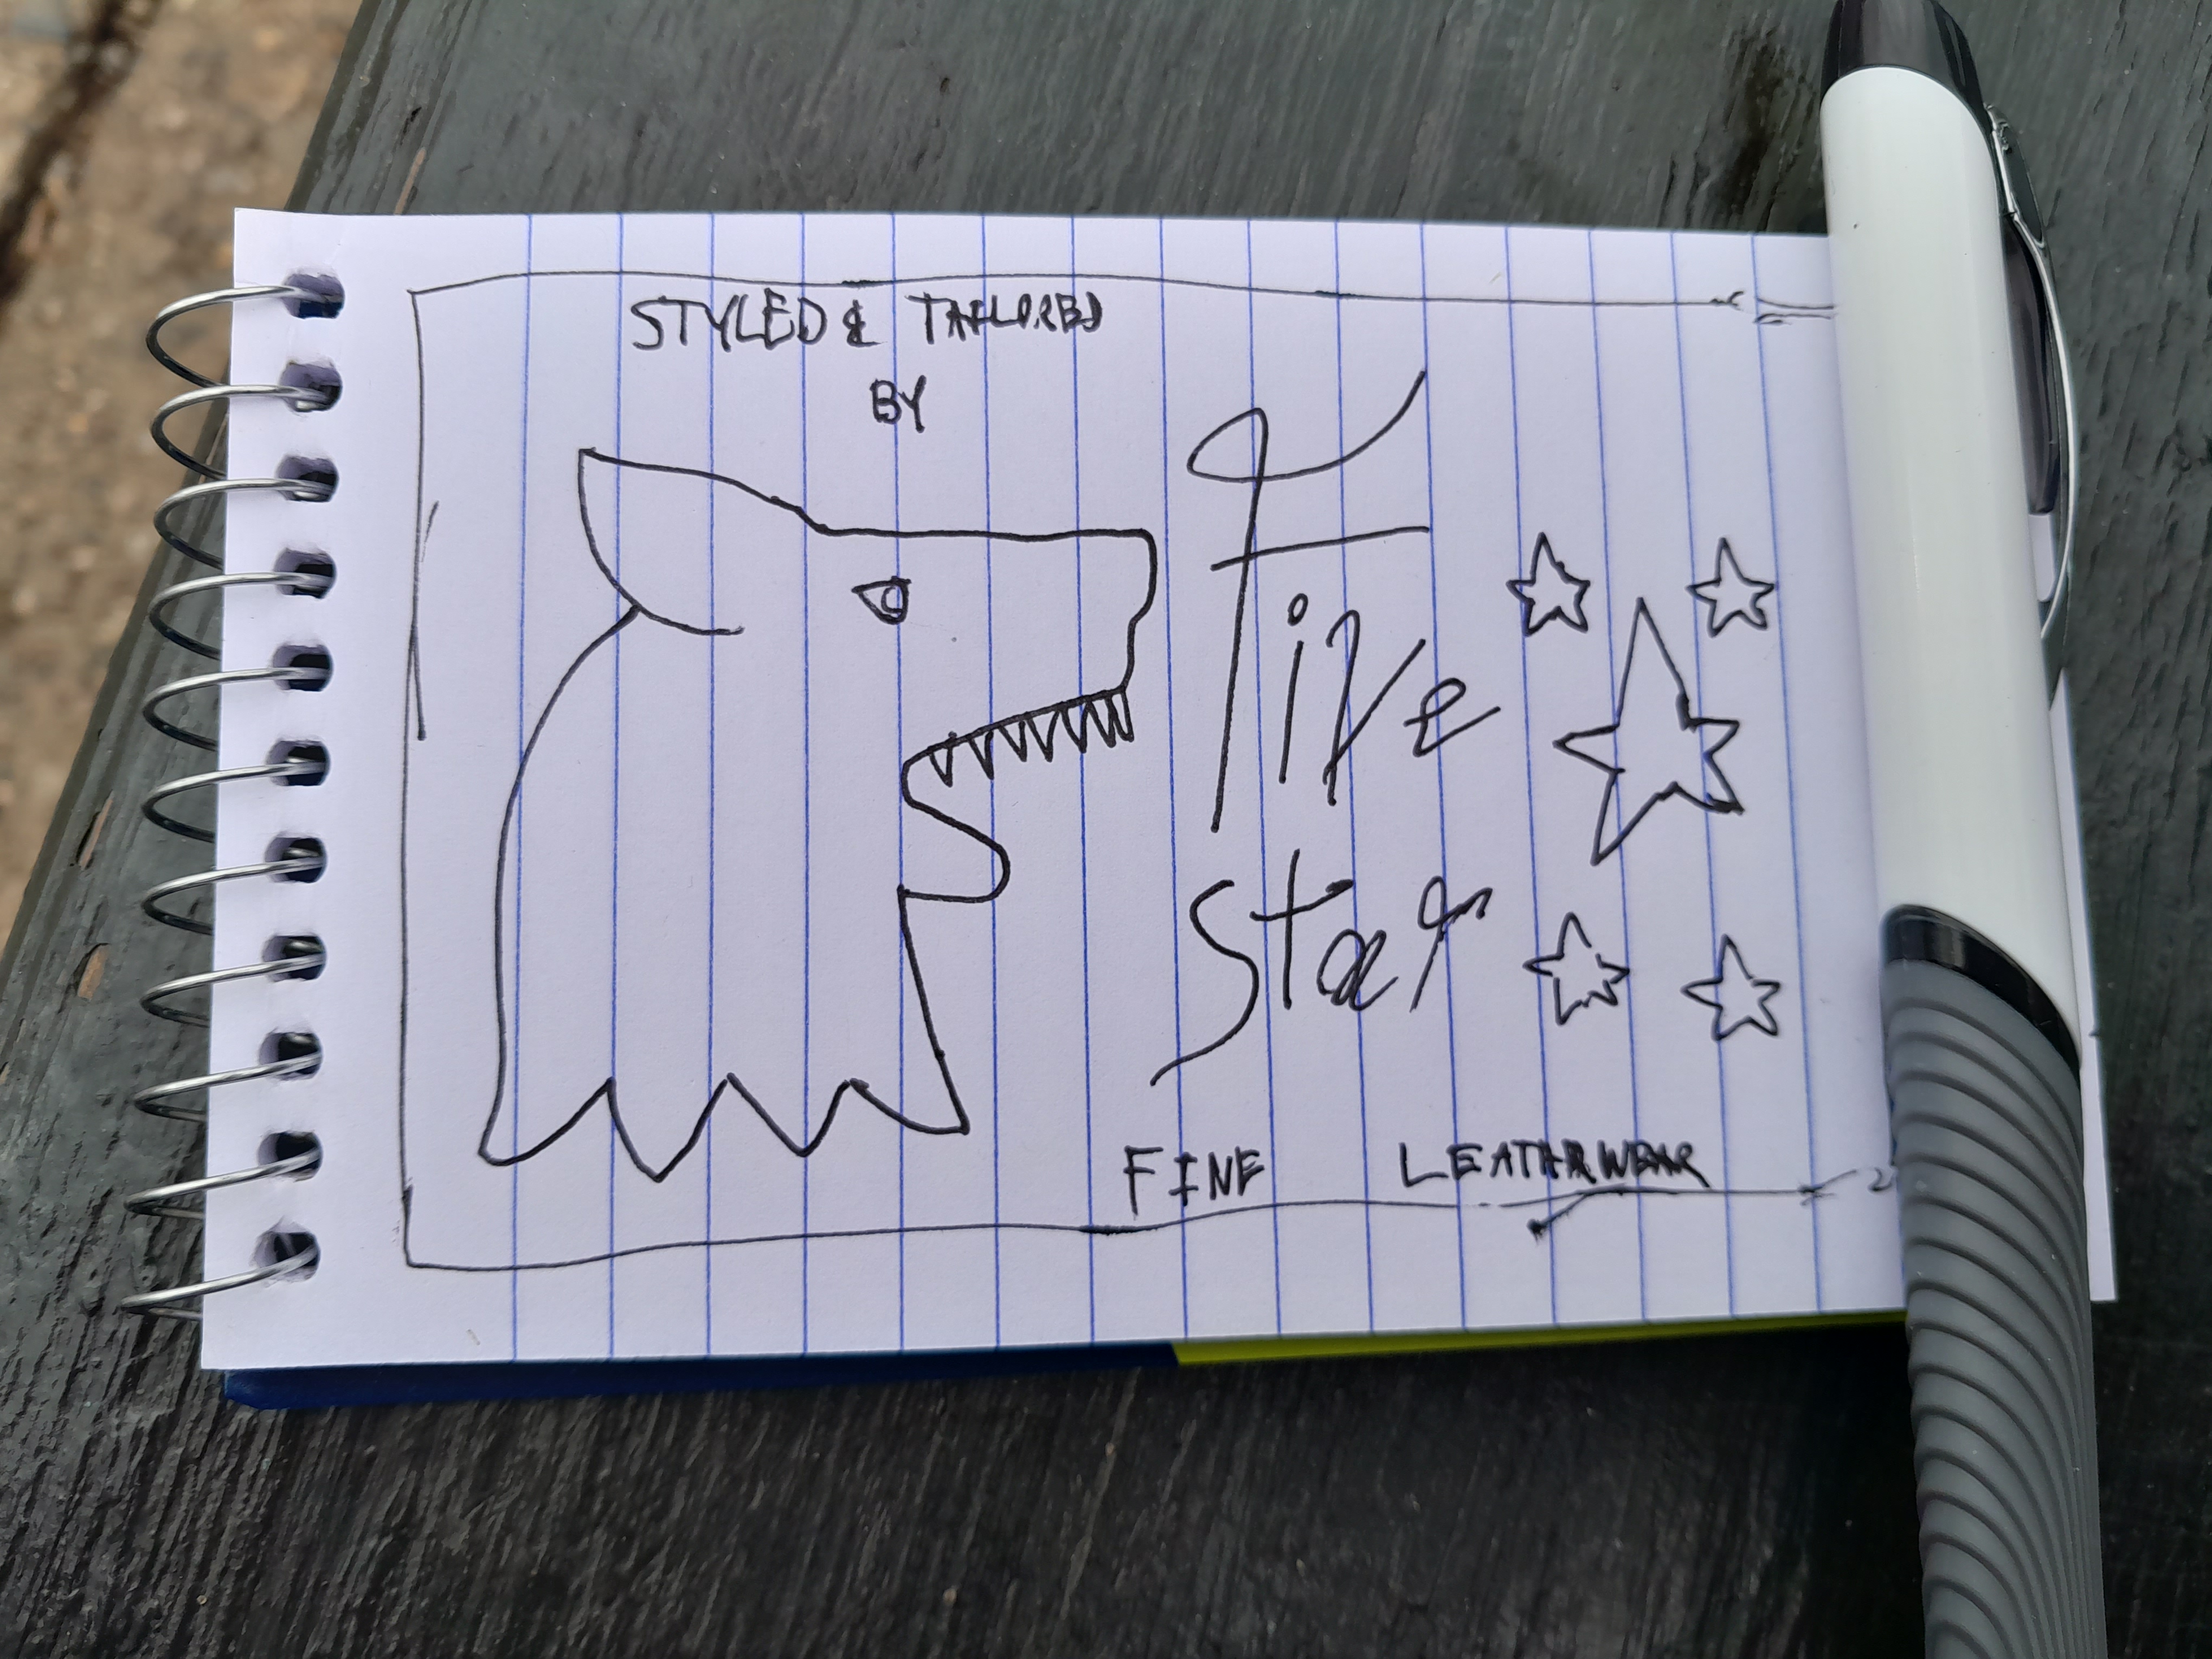 STYLED & TAILORED
BY
Five
Star
FINE LEATHRWEAR